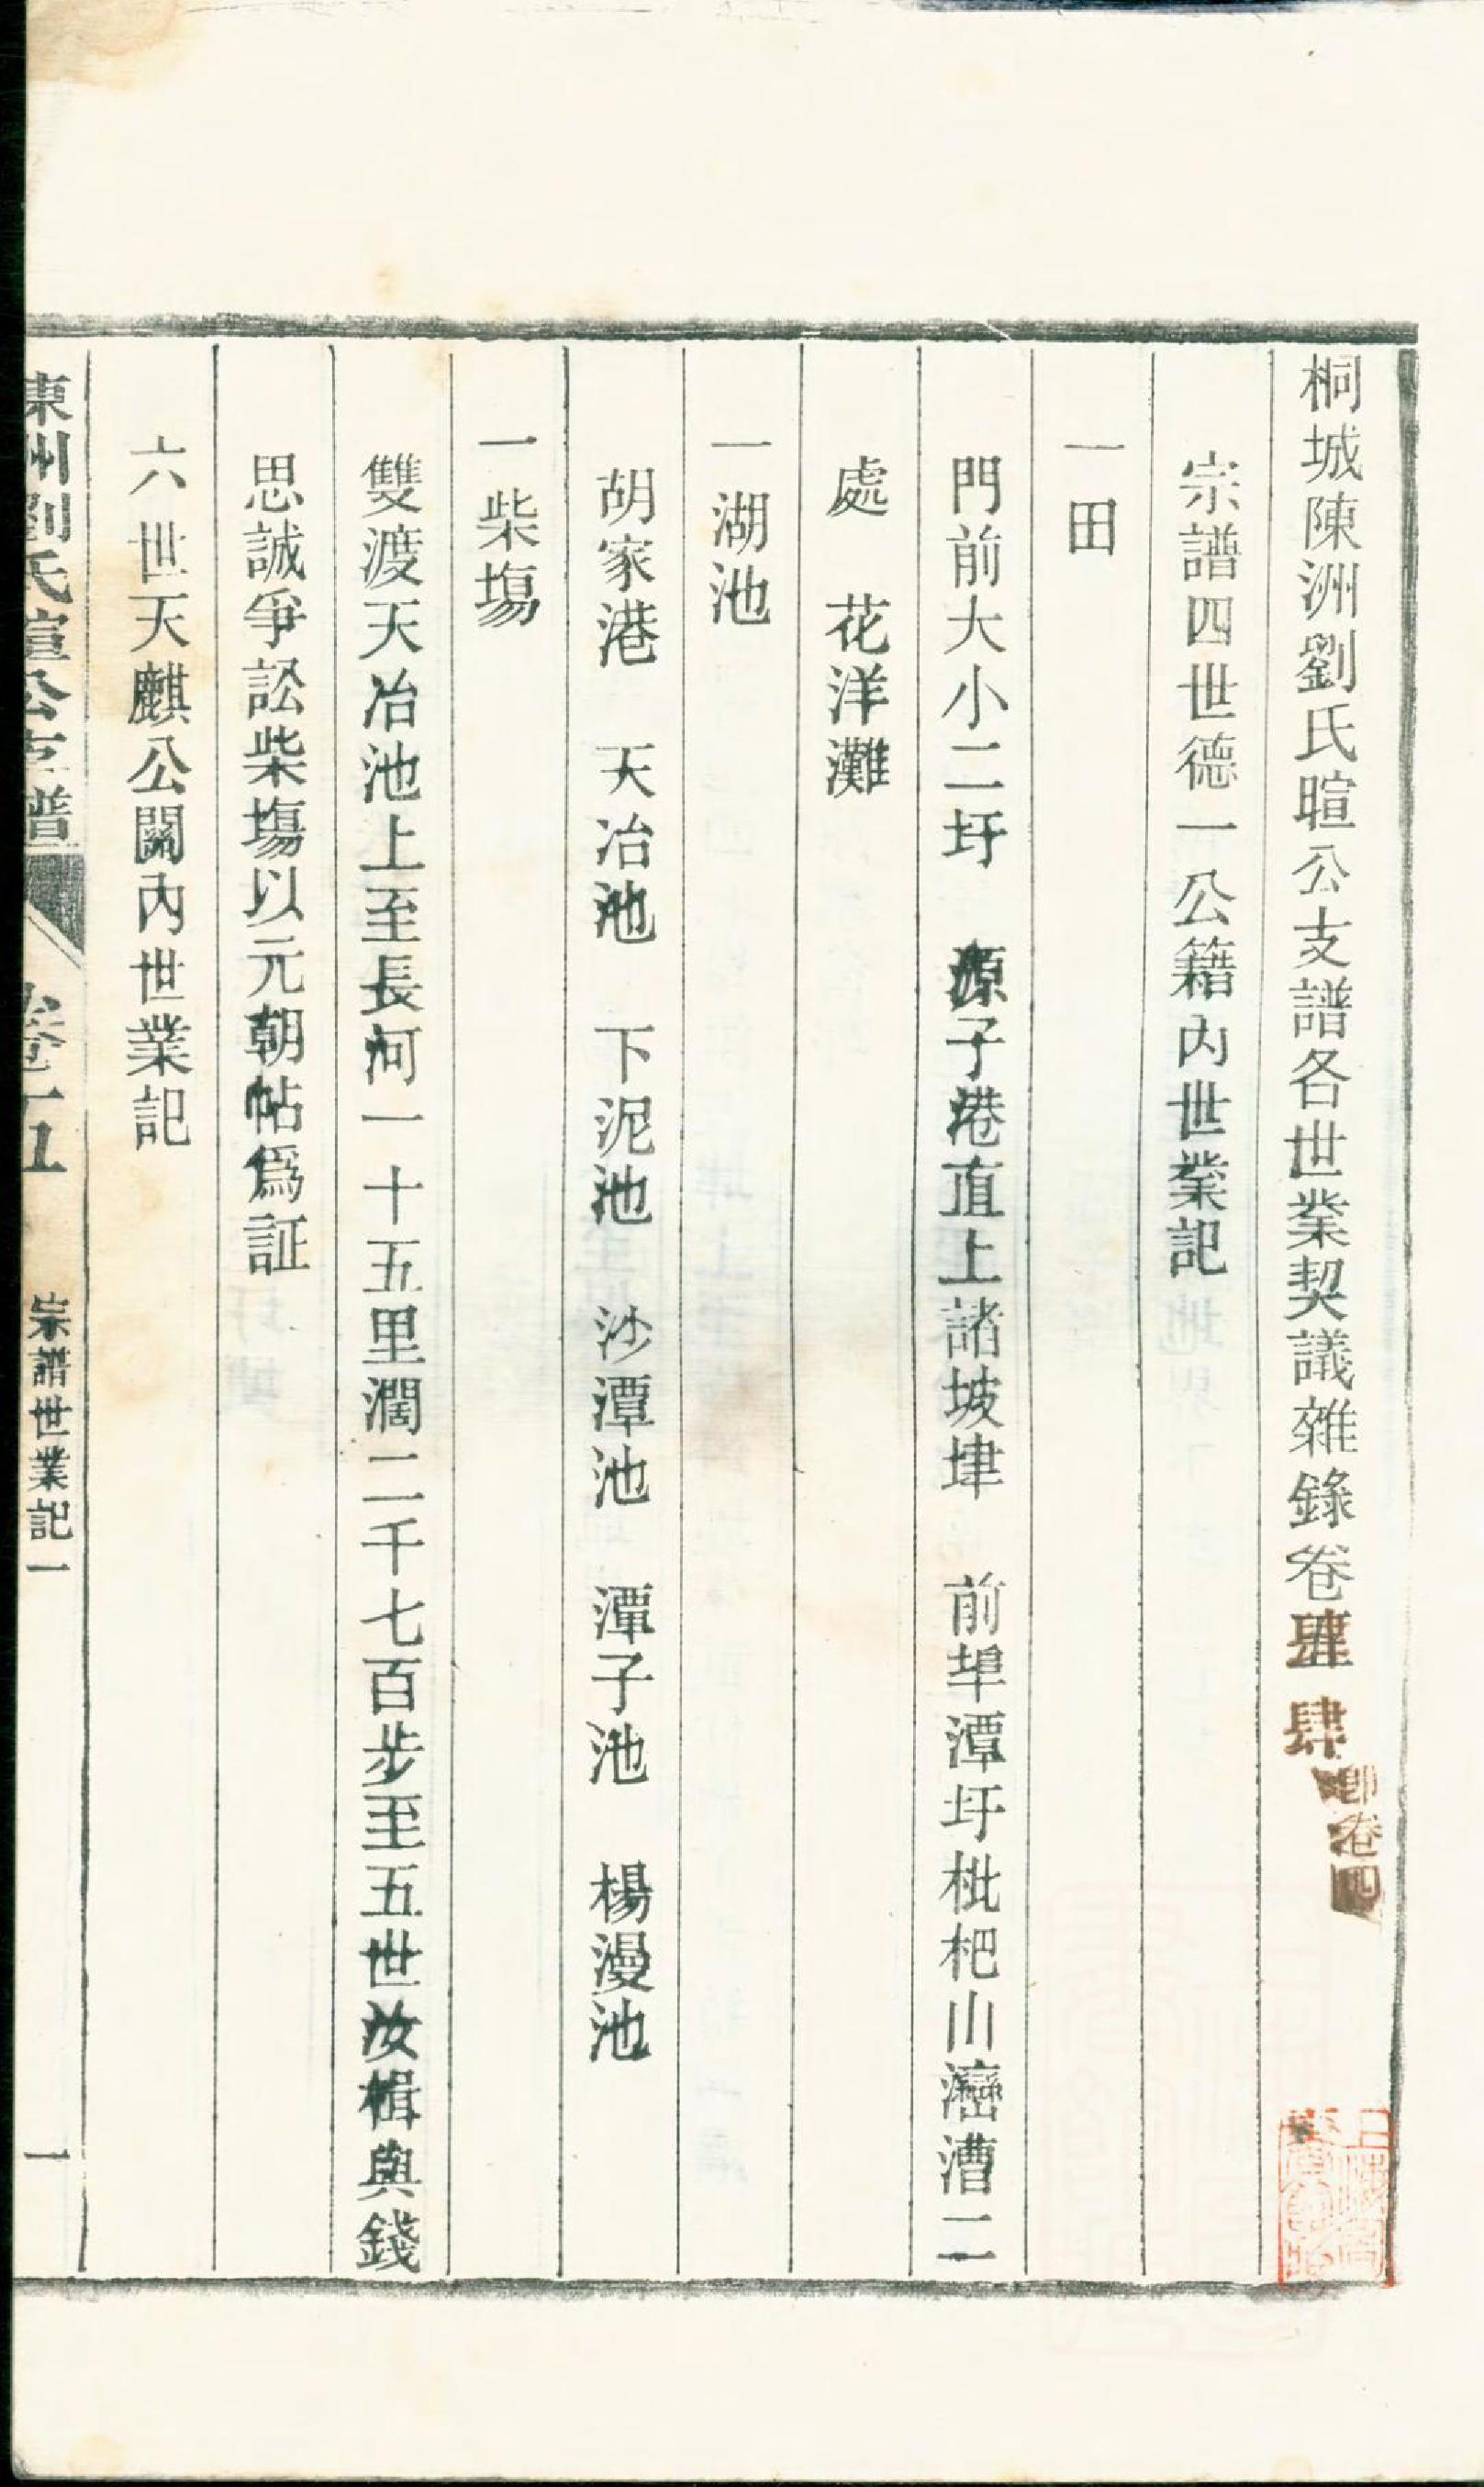 桐城陳洲劉氏暄公支譜各世業契議雜錄卷肆
肆
即卷四
宗譜四世德一公籍内世業記
一田
門前大小二圩　源子港直上諸坡埂　前埠潭圩枇杷山灣漕二
處　花洋灘
一湖池
胡家港　天冶池　下泥池　沙潭池　潭子池　楊漫池
一柴塲
雙渡天冶池上至長河一十五里濶二千七百步至五世汝楫與錢
思誠爭訟柴塲以元朝帖爲証
六世天麒公鬮內世業記
陳洲劉氏暄公支譜
卷十五
宗譜世業記一
一